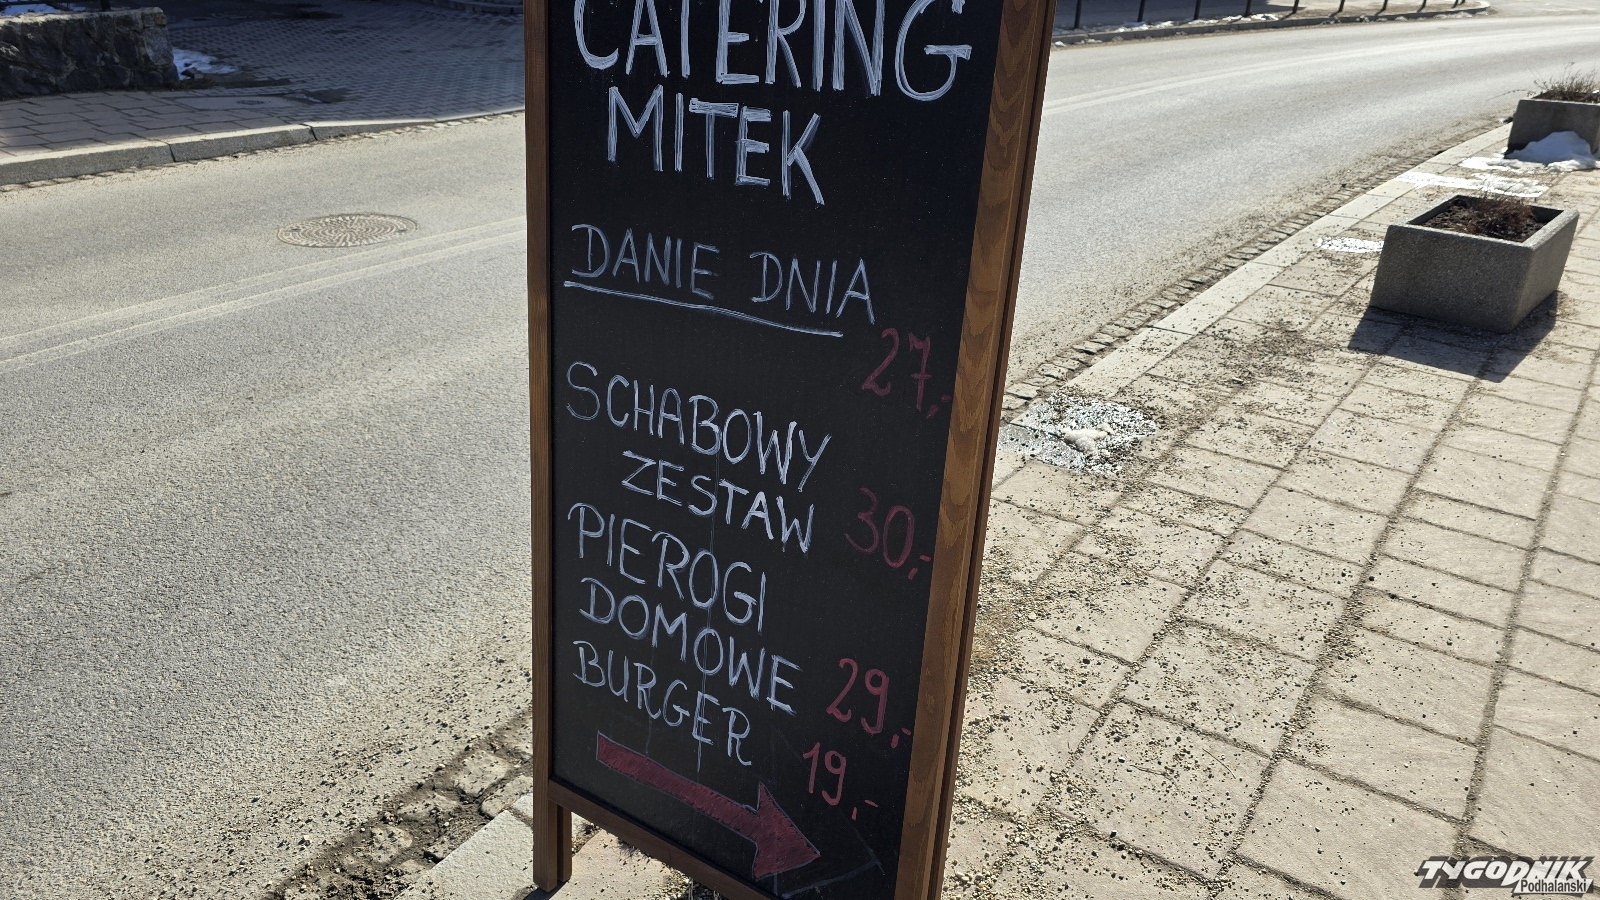 CATERING
MITEK
DANIE DNIA
27,-
SCHABOWY
ZESTAW
30,-
PIEROGI
DOMOWE
29,-
BURGER
19,-
TYGODNIK
Podhalański